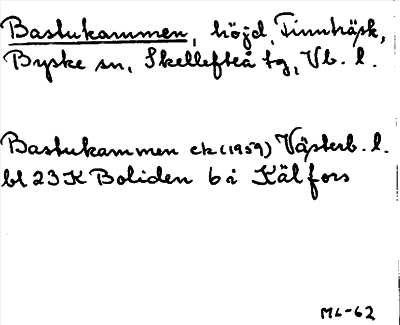 Bastukammen, höjd, Finnträsk,
Byske sn, Skellefteå tg, Vb. l.
Bastukammen ek (1959) Västerb. l.
bl 23K Boliden 6 i Källfors
ML-62